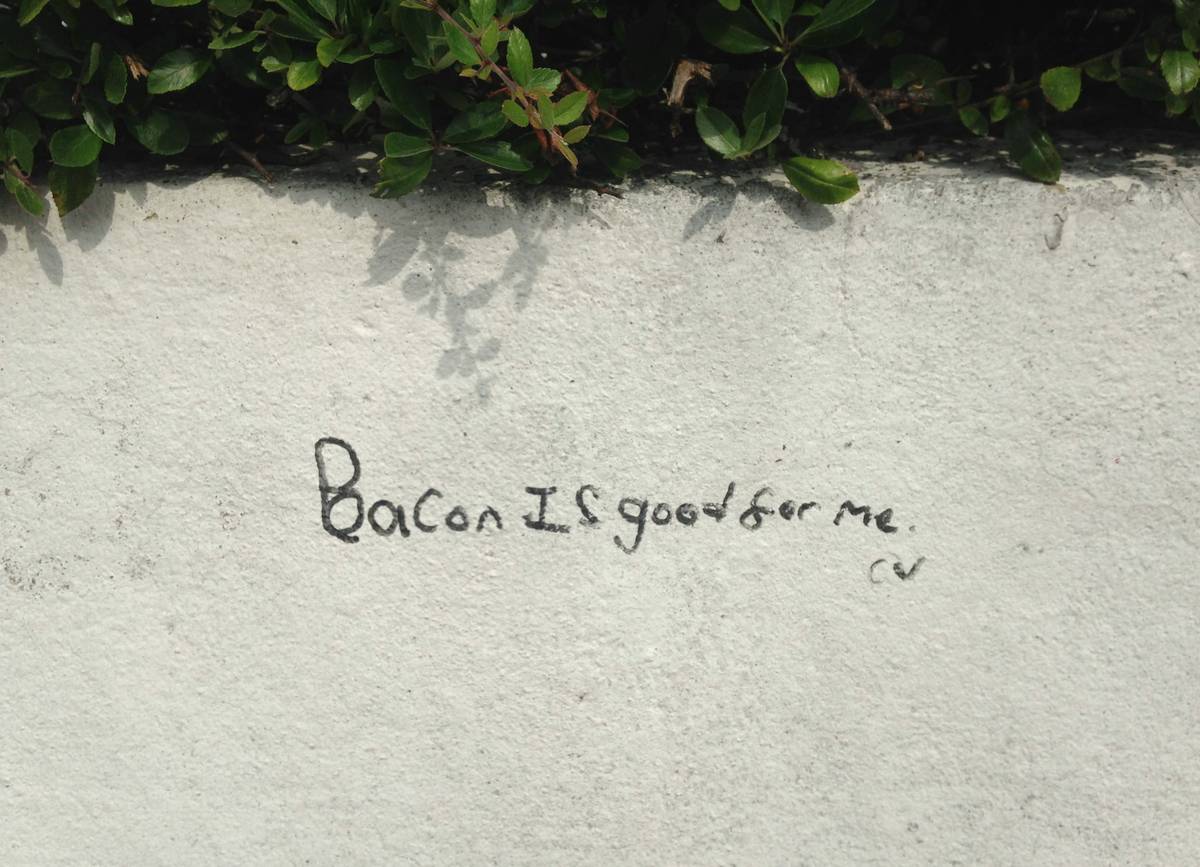 Bacon Is good for me.
CV